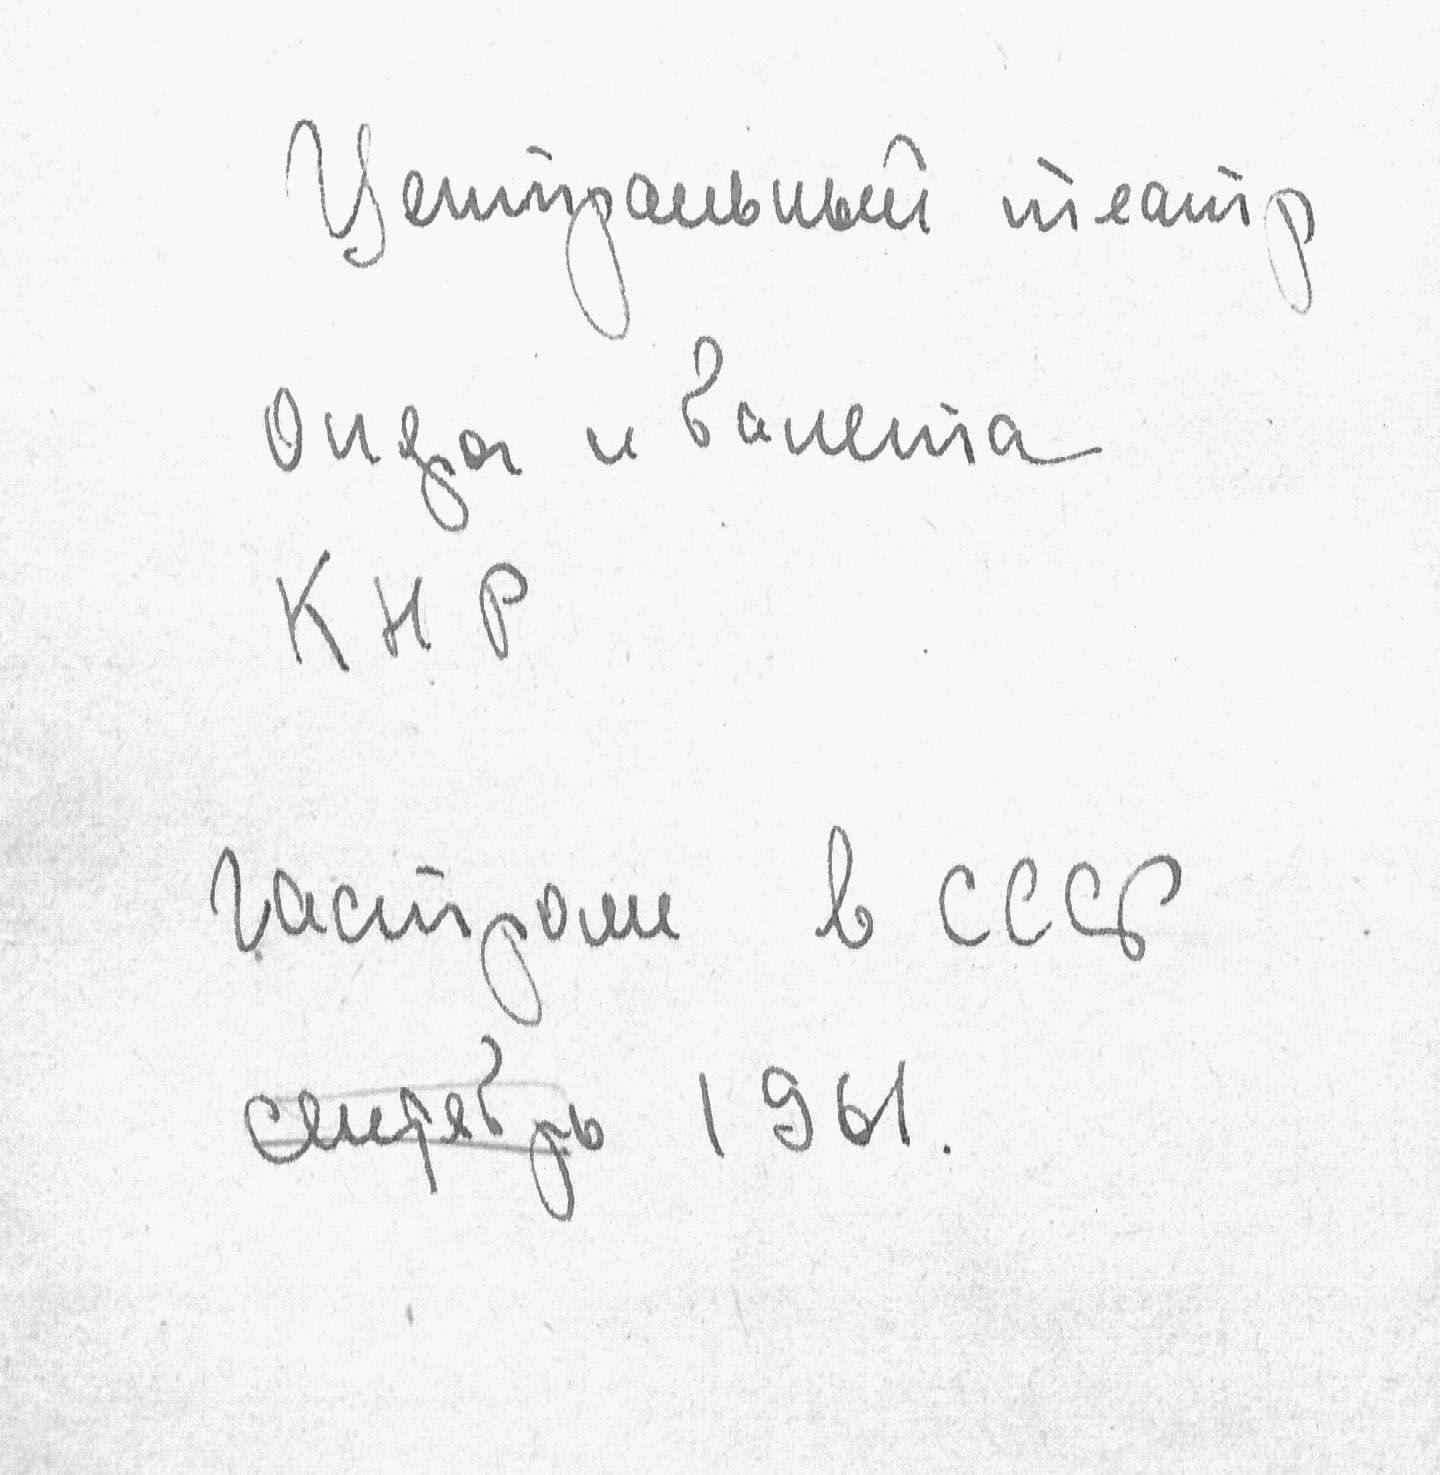 Центральный театр
Опера и балета
КНР
Гастроли в СССР
сентябрь 1961.